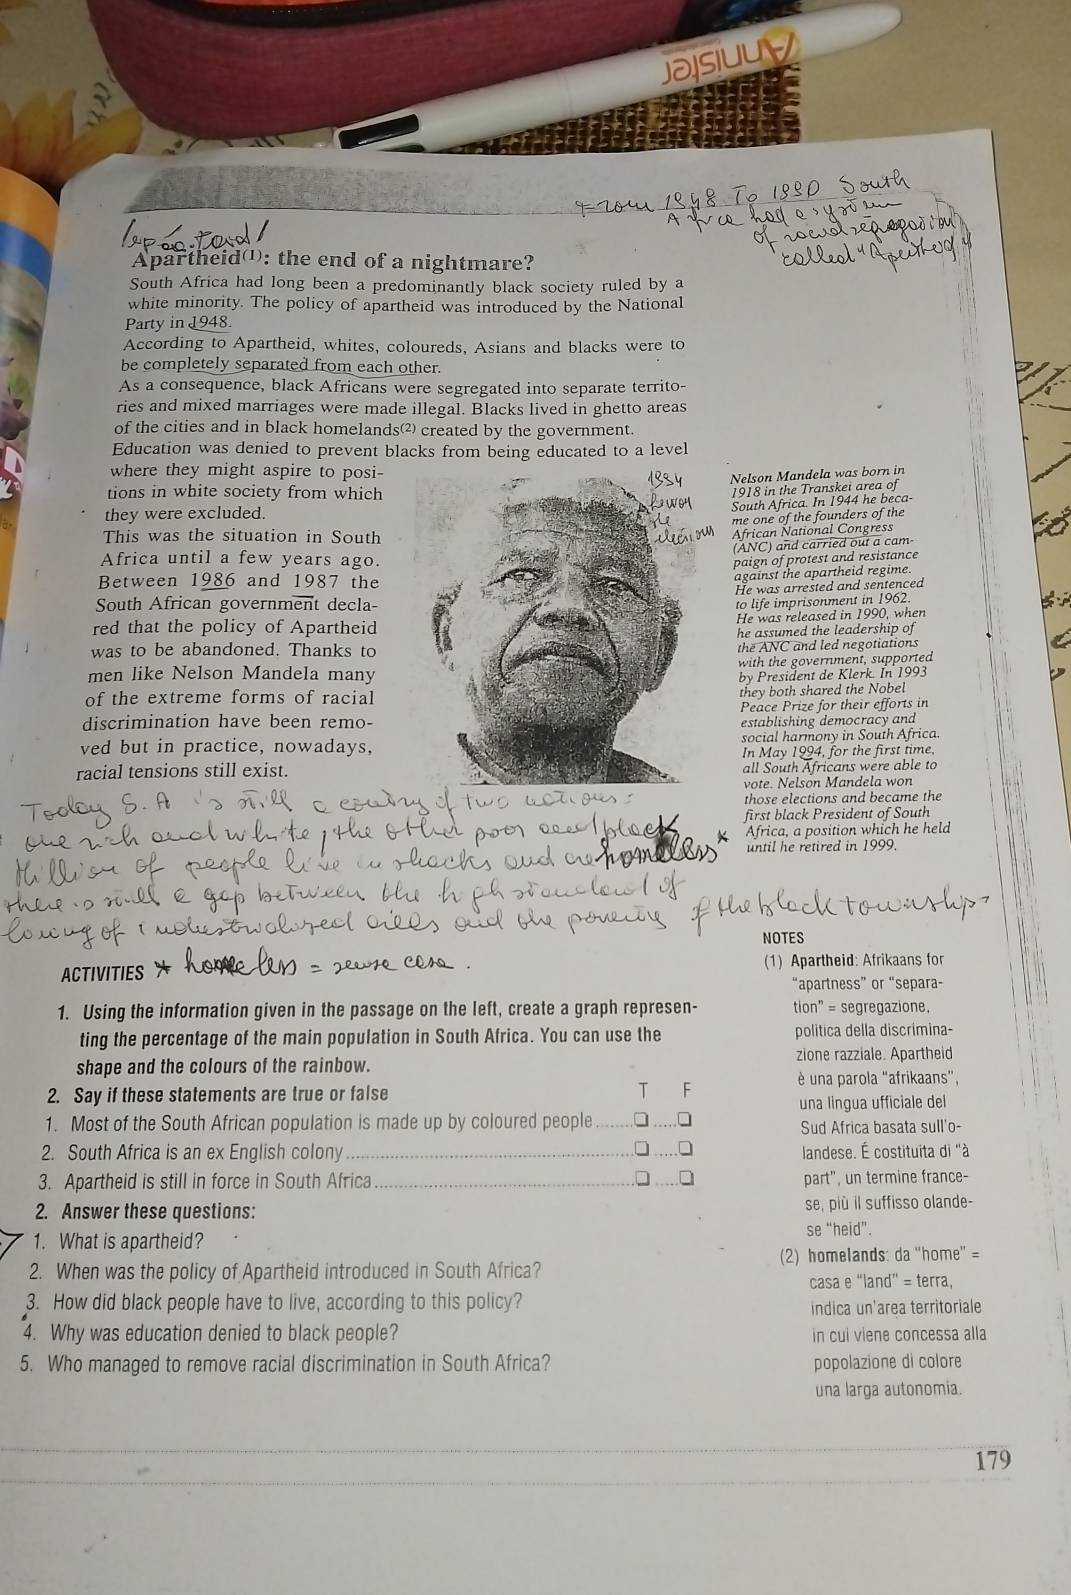 Annister
From 1948 To 1990 South
Africa had a system
of racial segregation
called "Apartheid"
Apartheid(1): the end of a nightmare?
South Africa had long been a predominantly black society ruled by a
white minority. The policy of apartheid was introduced by the National
Party in 1948.
According to Apartheid, whites, coloureds, Asians and blacks were to
be completely separated from each other.
As a consequence, black Africans were segregated into separate territo-
ries and mixed marriages were made illegal. Blacks lived in ghetto areas
of the cities and in black homelands(2) created by the government.
Education was denied to prevent blacks from being educated to a level
where they might aspire to posi-
tions in white society from which
they were excluded.
This was the situation in South
Africa until a few years ago.
Between 1986 and 1987 the
South African government decla-
red that the policy of Apartheid
was to be abandoned. Thanks to
men like Nelson Mandela many
of the extreme forms of racial
discrimination have been remo-
ved but in practice, nowadays,
racial tensions still exist.
1994
he won
the
elections
Nelson Mandela was born in
1918 in the Transkei area of
South Africa. In 1944 he beca-
me one of the founders of the
African National Congress
(ANC) and carried out a cam-
paign of protest and resistance
against the apartheid regime.
He was arrested and sentenced
to life imprisonment in 1962.
He was released in 1990, when
he assumed the leadership of
the ANC and led negotiations
with the government, supported
by President de Klerk. In 1993
they both shared the Nobel
Peace Prize for their efforts in
establishing democracy and
social harmony in South Africa.
In May 1994, for the first time,
all South Africans were able to
vote. Nelson Mandela won
those elections and became the
first black President of South
Africa, a position which he held
until he retired in 1999.
Today S. A is still a country of two nations:
one rich and white, the other poor and black
Million of people live in shacks and are homeless*
there is still a gap between the high standard of
of industrialized cities and the poverty of the black townships
ACTIVITIES * homeless = senza casa.
1. Using the information given in the passage on the left, create a graph represen-
ting the percentage of the main population in South Africa. You can use the
shape and the colours of the rainbow.
2. Say if these statements are true or false T F
1. Most of the South African population is made up by coloured people ........❏ .....❏
2. South Africa is an ex English colony ........❏ .....❏
3. Apartheid is still in force in South Africa ........❏ .....❏
2. Answer these questions:
1. What is apartheid?
2. When was the policy of Apartheid introduced in South Africa?
3. How did black people have to live, according to this policy?
4. Why was education denied to black people?
5. Who managed to remove racial discrimination in South Africa?
NOTES
(1) Apartheid: Afrikaans for
"apartness" or "separa-
tion" = segregazione,
politica della discrimina-
zione razziale. Apartheid
è una parola "afrikaans",
una lingua ufficiale del
Sud Africa basata sull'o-
landese. É costituita di "à
part", un termine france-
se, più il suffisso olande-
se "heid".
(2) homelands: da "home" =
casa e "land" = terra,
indica un'area territoriale
in cui viene concessa alla
popolazione di colore
una larga autonomia.
179